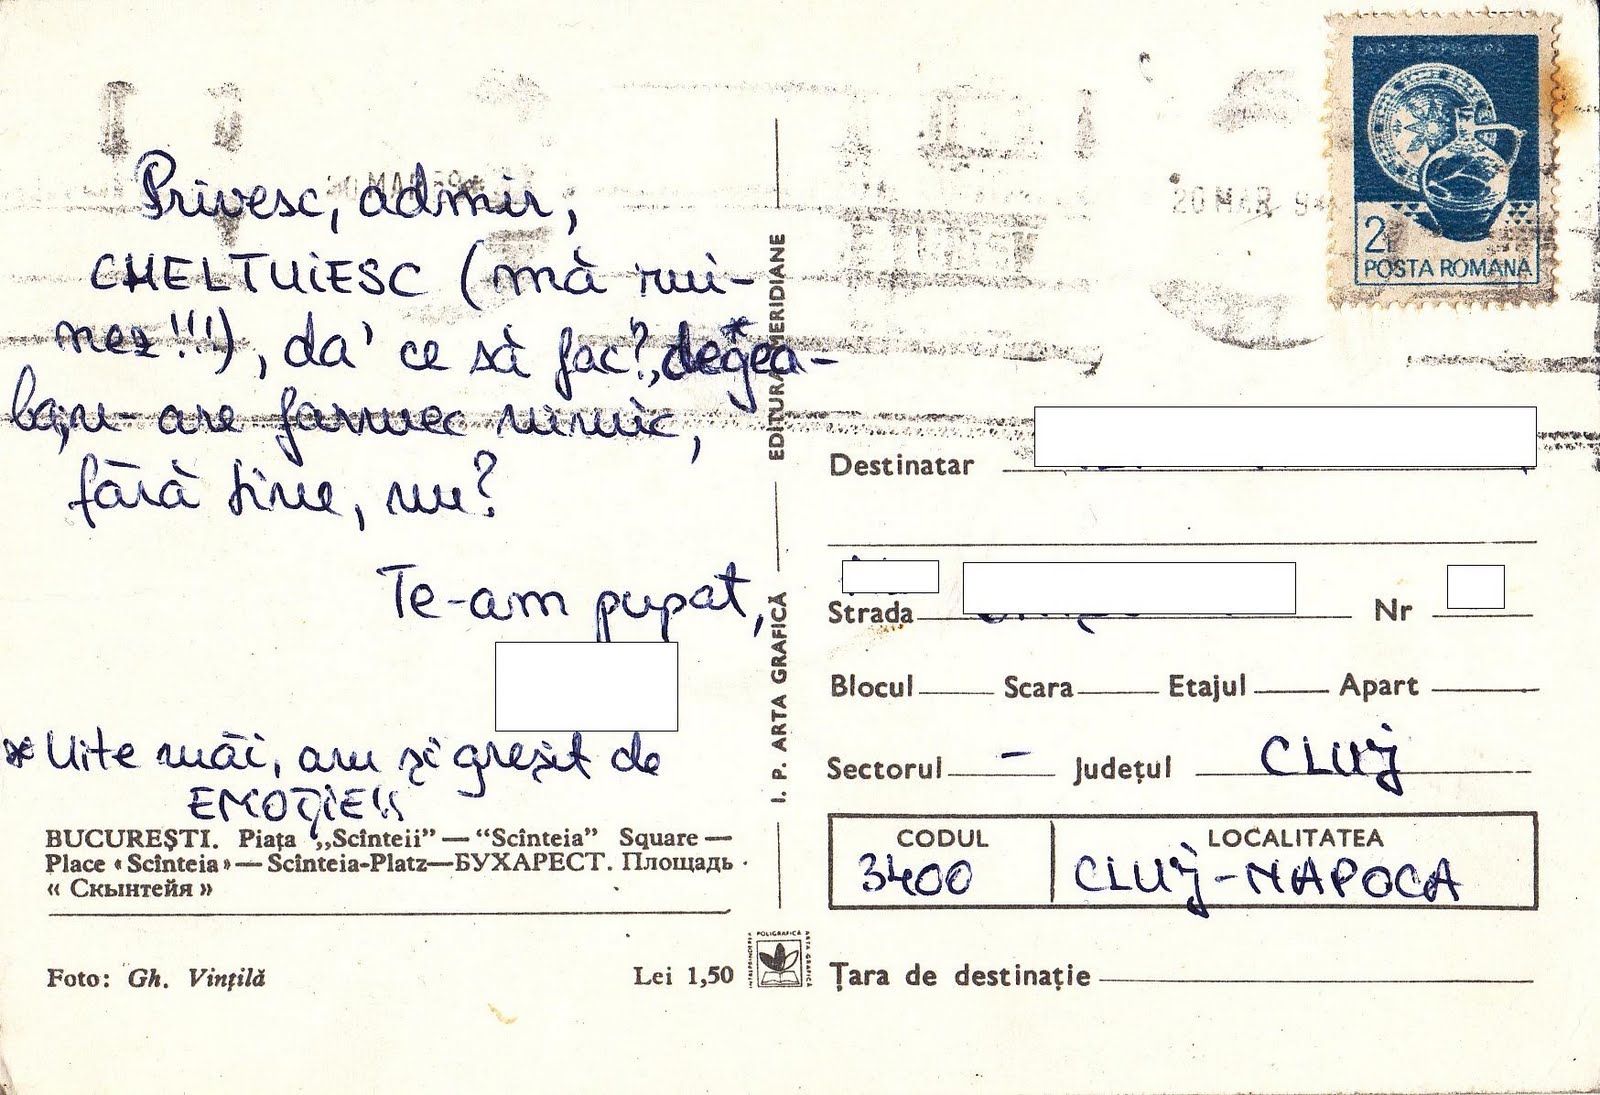 Privesc, admir,
CHELTUIESC (mă rui-
nez!!!), da' ce să fac?, degea*-
ba, n-are farmec nimic,
fără tine, nu?
Te-am pupat,
* Uite măi, am și greșit de
EMOȚIE!!
BUCUREȘTI. Piața „Scînteii” — “Scînteia” Square —
Place « Scînteia » — Scînteia-Platz — БУХАРЕСТ. Площадь
« Скынтейя »
Foto: Gh. Vințilă
Lei 1,50
I. P. ARTA GRAFICĂ
EDITURA MERIDIANE
INTREPRINDEREA POLIGRAFICĂ ARTA GRAFICĂ
20 MAR
20 MAR 94
ARTA POPULARĂ
2L
POSTA ROMANA
Destinatar
Strada Nr
Blocul Scara Etajul Apart
Sectorul – Județul CLUJ
CODUL LOCALITATEA
3400 CLUJ-NAPOCA
Țara de destinație